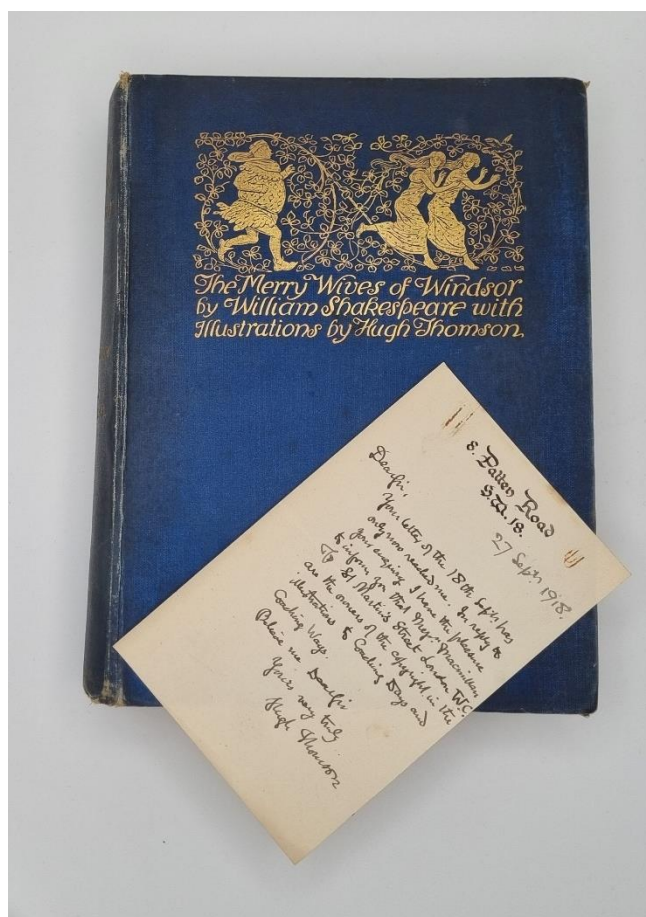 The Merry Wives of Windsor
by William Shakespeare with
Illustrations by Hugh Thomson,
8. Patten Road
S.W.18.
27 Septr. 1918.
Dear Sir,
Your letter of the 18th Septr has
only now reached me. In reply to
your enquiry I have the pleasure
to inform you that Messrs Macmillan
St Martin's Street London W.C.
are the owners of the copyright in the
illustrations to Coaching Days and
Coaching Ways.
Believe me Dear Sir
Yours very truly
Hugh Thomson